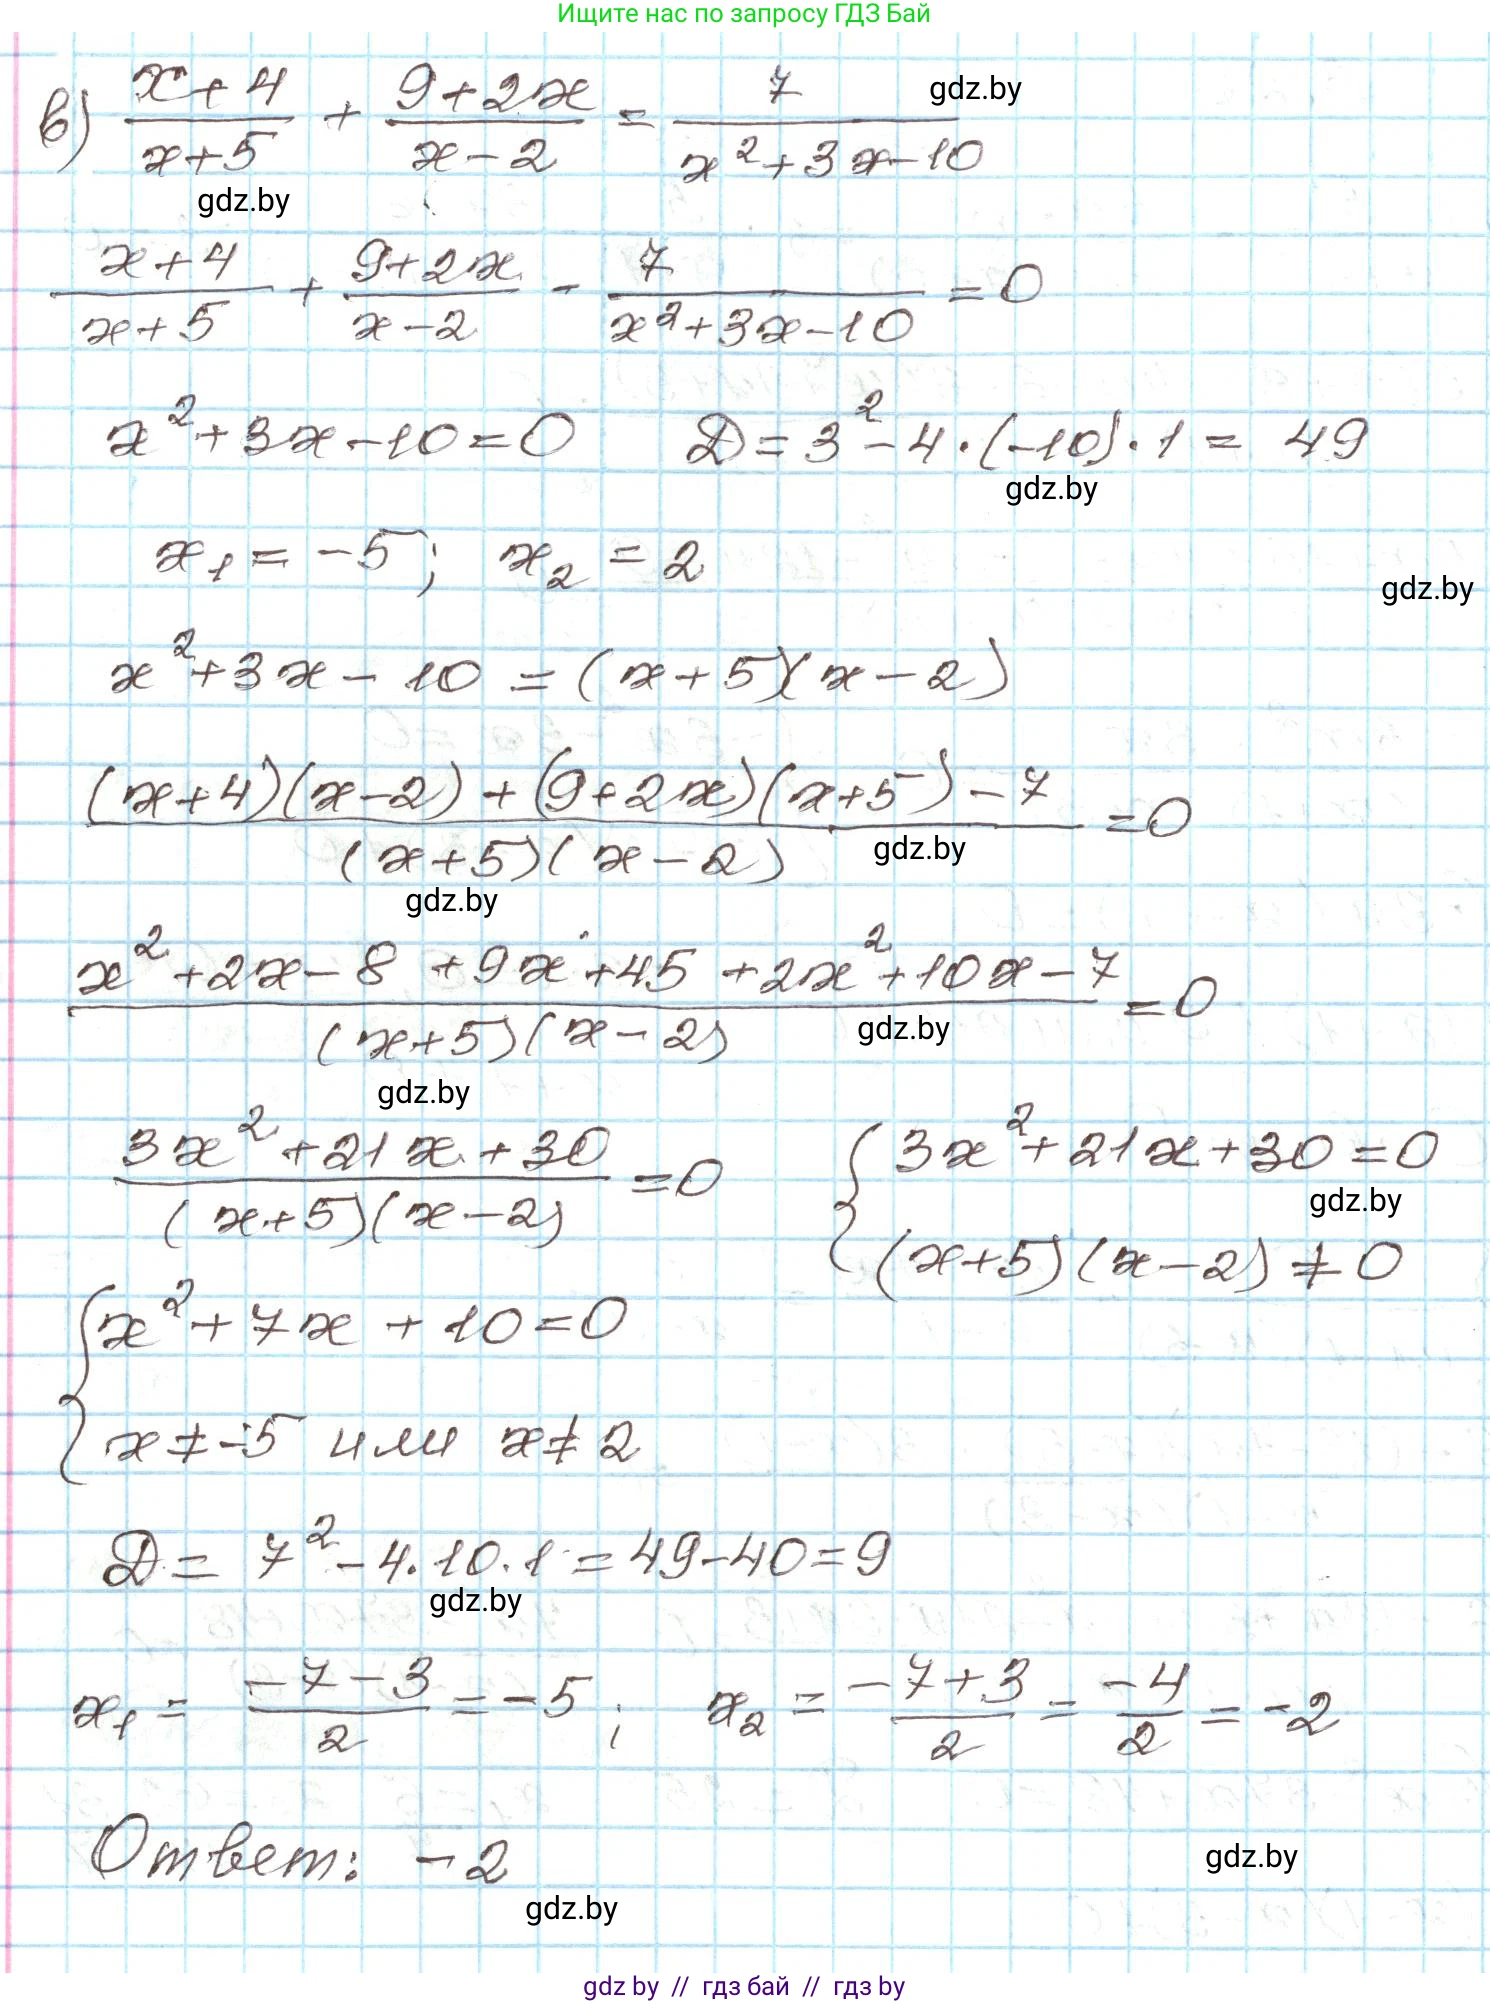 Ищите нас по запросу ГДЗ Бай
в) (x+4)/(x+5) + (9+2x)/(x-2) = 7/(x²+3x-10)
gdz.by
gdz.by
(x+4)/(x+5) + (9+2x)/(x-2) - 7/(x²+3x-10) = 0
x²+3x-10=0 D=3²-4·(-10)·1= 49
gdz.by
x₁=-5; x₂=2
gdz.by
x²+3x-10=(x+5)(x-2)
((x+4)(x-2)+(9+2x)(x+5)-7)/((x+5)(x-2)) =0
gdz.by
gdz.by
(x²+2x-8+9x+45+2x²+10x-7)/((x+5)(x-2)) =0
gdz.by
gdz.by
(3x²+21x+30)/((x+5)(x-2)) =0 { 3x²+21x+30=0
gdz.by
(x+5)(x-2)≠0
{ x²+7x+10=0
x≠-5 или x≠2
D= 7²-4·10·1=49-40=9
gdz.by
x₁= (-7-3)/2 =-5; x₂= (-7+3)/2 = (-4)/2 = -2
Ответ: -2
gdz.by
gdz.by
gdz by // гдз бай // гдз by